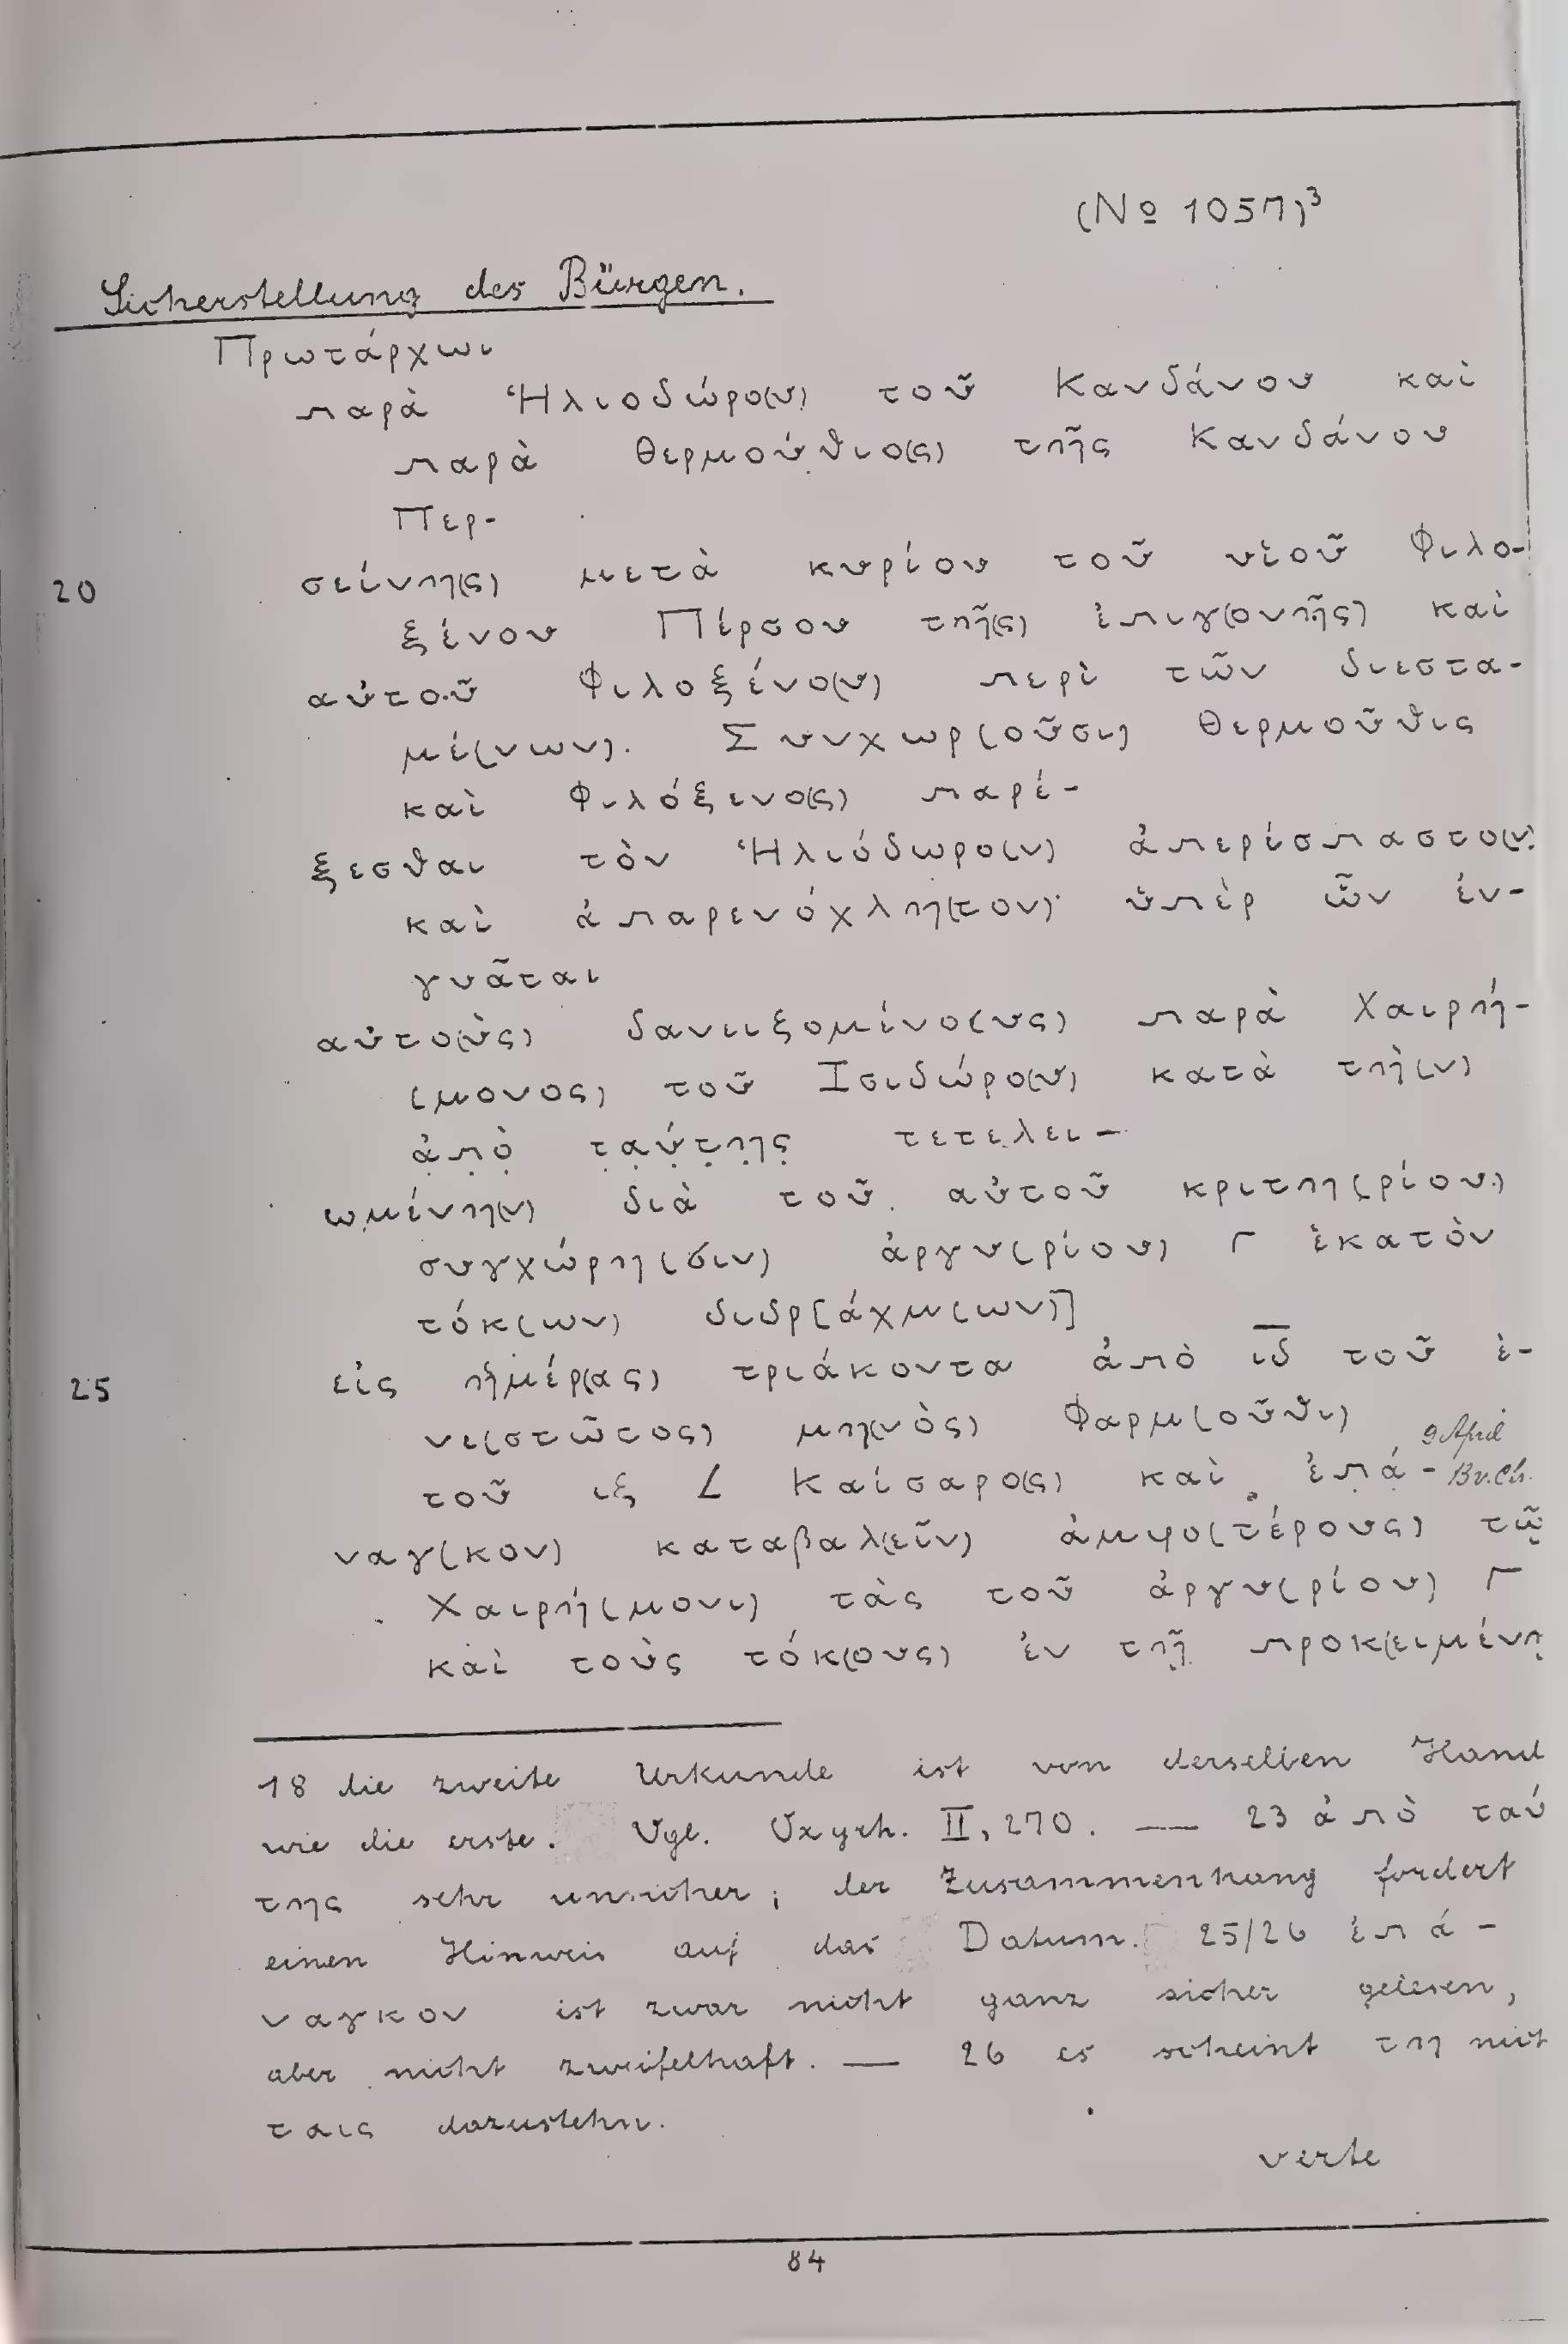 (No 1057)³
Sicherstellung des Bürgen.
Πρωτάρχωι
παρὰ Ἡλιοδώρο(υ) τοῦ Κανδάνου καὶ
παρὰ Θερμούθιο(ς) τῆς Κανδάνου
Περ-
20 σείνη(ς) μετὰ κυρίου τοῦ υἱοῦ Φιλο-
ξένου Πέρσου τῆ(ς) ἐπιγ(ονῆς) καὶ
αὐτοῦ Φιλοξένο(υ) περὶ τῶν διεστα-
μέ(νων). Συνχωρ(οῦσι) Θερμοῦθις
καὶ Φιλόξενο(ς) παρέ-
ξεσθαι τὸν Ἡλιόδωρο(ν) ἀπερίσπαστο(ν)
καὶ ἀπαρενόχλη(τον) ὑπὲρ ὧν ἐν-
γυᾶται
αὐτο(ὺς) δανειζομένο(υς) παρὰ Χαιρή-
(μονος) τοῦ Ἰσιδώρο(υ) κατὰ τὴ(ν)
ἀ̣π̣ὸ̣ τ̣α̣ύ̣τ̣η̣ς̣ τετελει-
ωμένη(ν) διὰ τοῦ αὐτοῦ κριτη(ρίου)
συγχώρη(σιν) ἀργυ(ρίου) Γ ἑκατὸν
τόκ(ων) διδρ[άχμ(ων)]
25 εἰς ἡμέρ(ας) τριάκοντα ἀπὸ ι̅δ̅ τοῦ ἐ-
νε(στῶτος) μη(νὸς) Φαρμ(οῦθι)
9 April
τοῦ ιξ L Καίσαρο(ς) καὶ ἐπ̣ά̣-
13 v. Ch.
ναγ(κον) καταβαλ(εῖν) ἀμφο(τέρους) τῷ
Χαιρή(μονι) τὰς τοῦ ἀργυ(ρίου) Γ
καὶ τοὺς τόκ(ους) ἐν τῇ προκ(ειμένῃ
18 die zweite Urkunde ist von derselben Hand
wie die erste. Vgl. Oxyrh. II, 270. — 23 ἀπὸ ταύ
της sehr unsicher; der Zusammenhang fordert
einen Hinweis auf das Datum. 25/26 ἐπά-
ναγκον ist zwar nicht ganz sicher gelesen,
aber nicht zweifelhaft. — 26 es scheint τη mit
ταις dazustehn.
verte
84